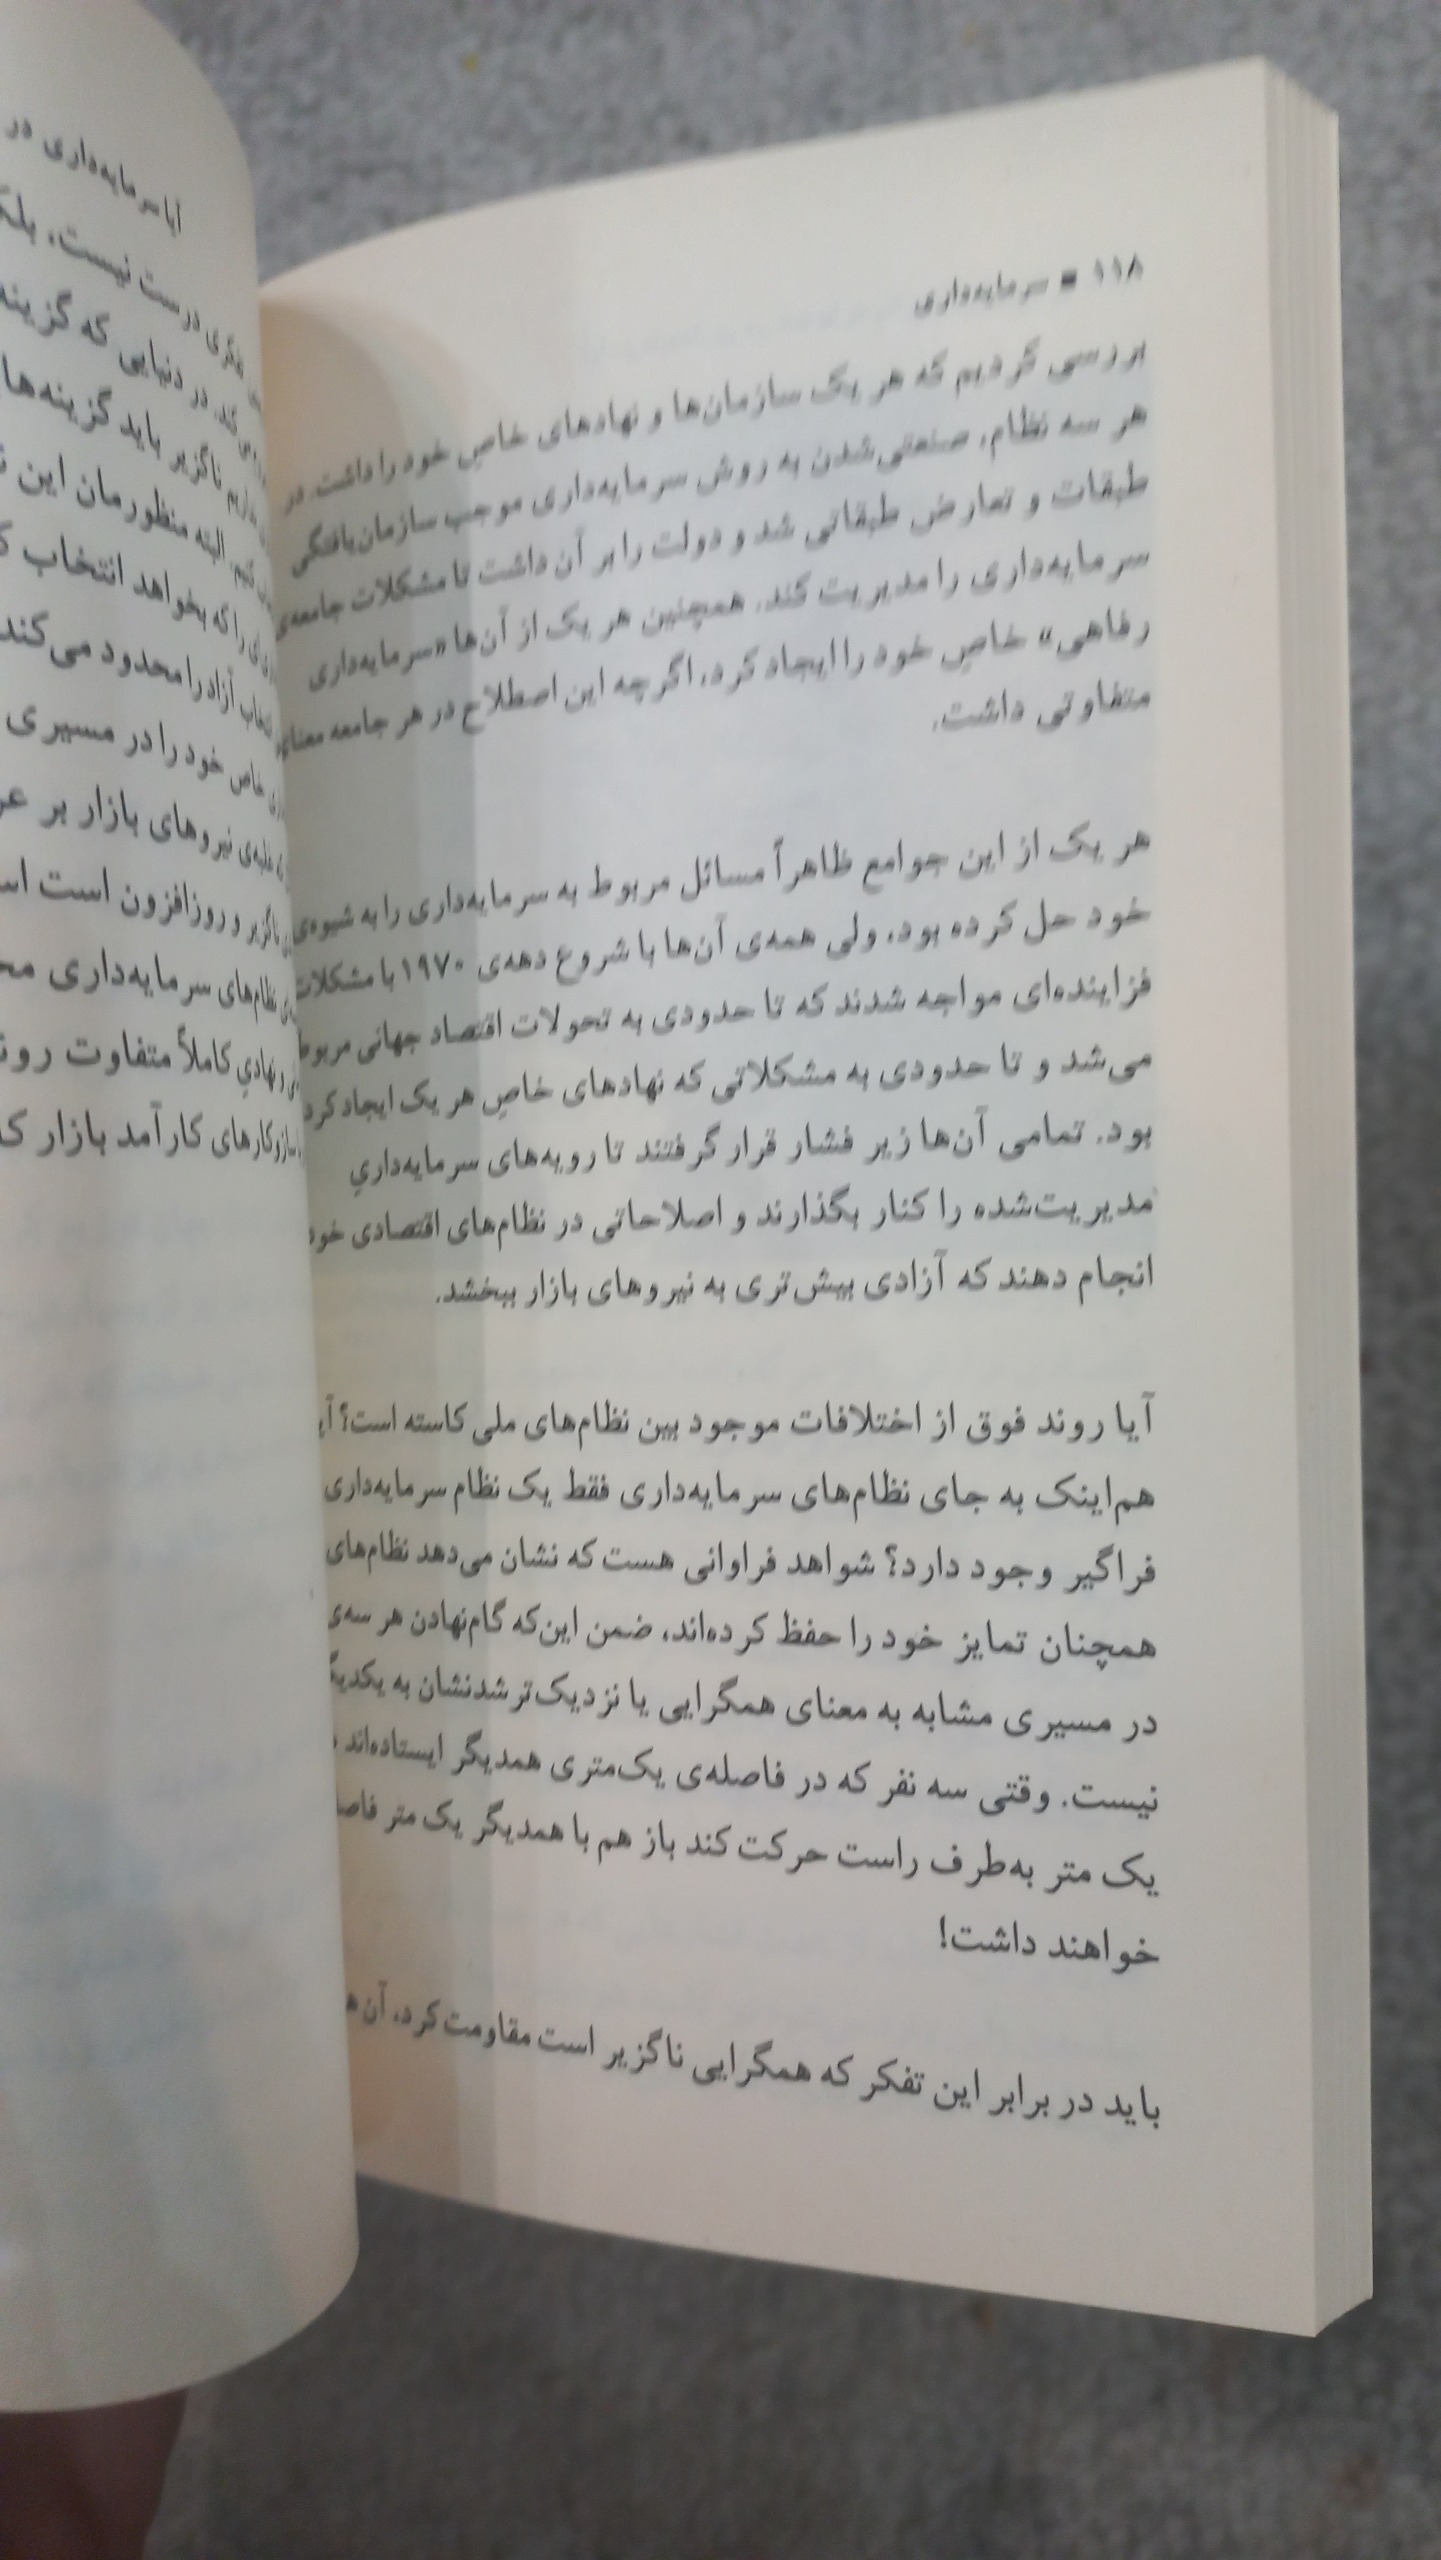 ۱۱۸ ■ سرمایه‌داری
بررسی کردیم که هر یک سازمان‌ها و نهادهای خاصِ خود را داشت. در
هر سه نظام، صنعتی‌شدن به روش سرمایه‌داری موجب سازمان‌یافتگی
طبقات و تعارض طبقاتی شد و دولت را بر آن داشت تا مشکلات جامعه‌ی
سرمایه‌داری را مدیریت کند. همچنین هر یک از آن‌ها «سرمایه‌داری
رفاهی» خاصِ خود را ایجاد کرد، اگرچه این اصطلاح در هر جامعه معنای
متفاوتی داشت.
هر یک از این جوامع ظاهراً مسائل مربوط به سرمایه‌داری را به شیوه‌ی
خود حل کرده بود، ولی همه‌ی آن‌ها با شروع دهه‌ی ۱۹۷۰ با مشکلات
فزاینده‌ای مواجه شدند که تا حدودی به تحولات اقتصاد جهانی مربوط
می‌شد و تا حدودی به مشکلاتی که نهادهای خاصِ هر یک ایجاد کرده
بود. تمامی آن‌ها زیر فشار قرار گرفتند تا رویه‌های سرمایه‌داریِ
مدیریت‌شده را کنار بگذارند و اصلاحاتی در نظام‌های اقتصادی خود
انجام دهند که آزادی بیش‌تری به نیروهای بازار ببخشد.
آیا روند فوق از اختلافات موجود بین نظام‌های ملی کاسته است؟ آیا
هم‌اینک به جای نظام‌های سرمایه‌داری فقط یک نظام سرمایه‌داری
فراگیر وجود دارد؟ شواهد فراوانی هست که نشان می‌دهد نظام‌های
همچنان تمایز خود را حفظ کرده‌اند، ضمن این‌که گام‌نهادن هر سه‌ی
در مسیری مشابه به معنای همگرایی یا نزدیک‌تر شدنشان به یکدیگر
نیست. وقتی سه نفر که در فاصله‌ی یک‌متری همدیگر ایستاده‌اند
یک متر به‌طرف راست حرکت کند باز هم با همدیگر یک متر فاصله
خواهند داشت!
باید در برابر این تفکر که همگرایی ناگزیر است مقاومت کرد.
آیا سرمایه‌داری در
تفکری درست نیست، بلکه
می‌کند. در دنیایی که گزینه
ناگزیر باید گزینه‌ها
کنیم. البته منظورمان این
را که بخواهد انتخاب
انتخاب آزاد را محدود می‌کند
خاص خود را در مسیری
غلبه‌ی نیروهای بازار بر
ناگزیر و روزافزون است
نظام‌های سرمایه‌داری
نهادیِ کاملاً متفاوت
سازوکارهای کارآمد بازار